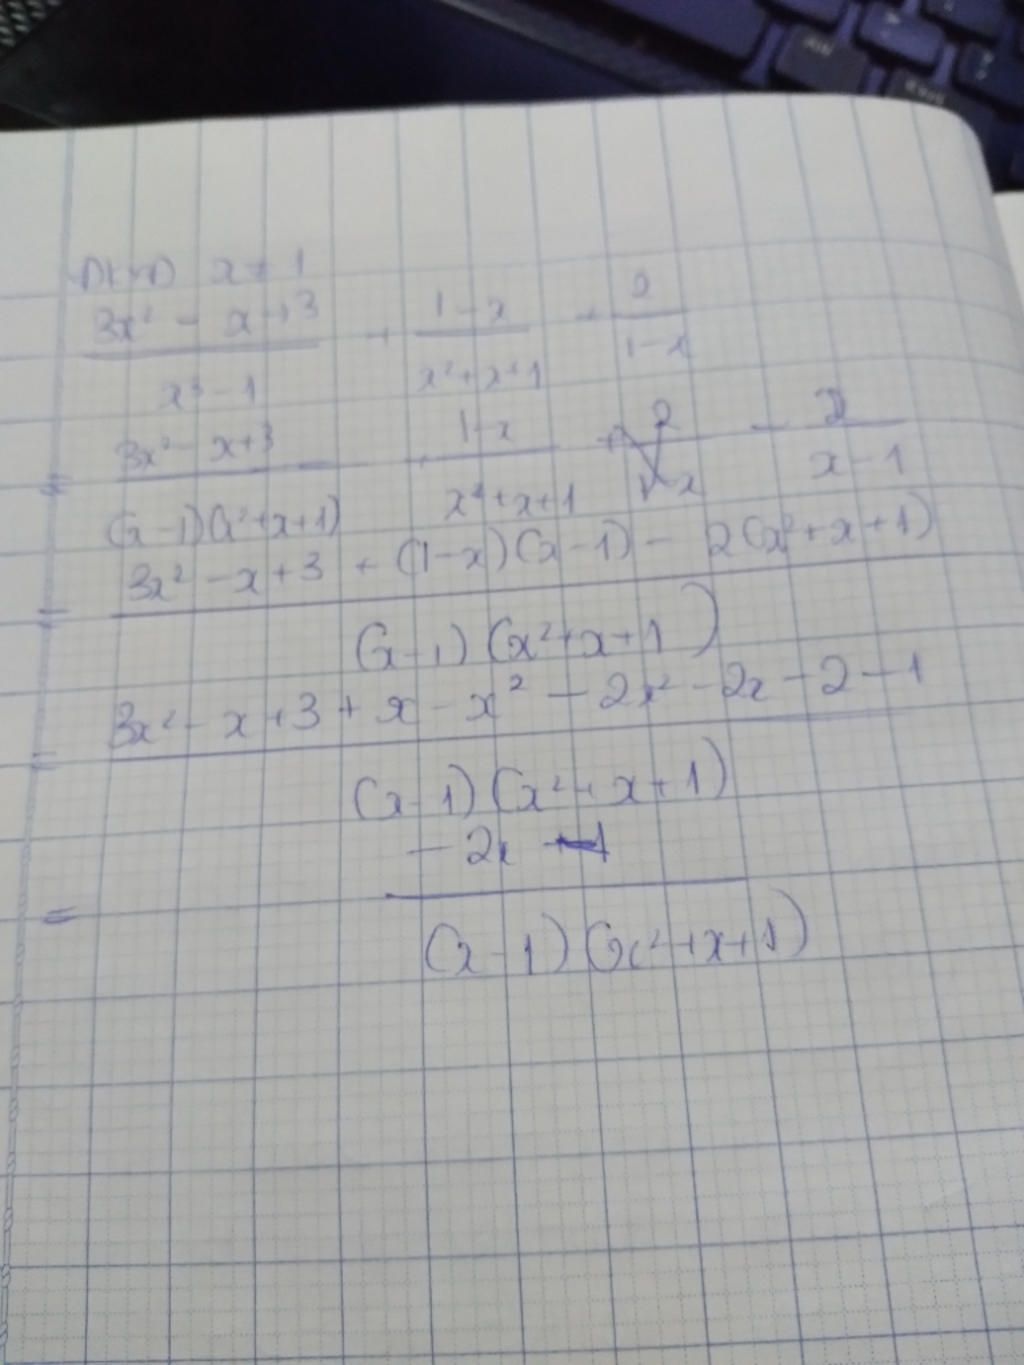 x ≠ 1
3x² - x+3 / x³ - 1 + 1-x / x²+x+1 + 2 / 1-x
= 3x² - x+3 / (x-1)(x²+x+1) + 1-x / x²+x+1 - 2 / x-1
= 3x² - x + 3 + (1-x)(x-1) - 2(x²+x+1) / (x-1)(x²+x+1)
= 3x² - x + 3 + x - x² - 2x² - 2x - 2 - 1 / (x-1)(x²+x+1)
= -2x / (x-1)(x²+x+1)